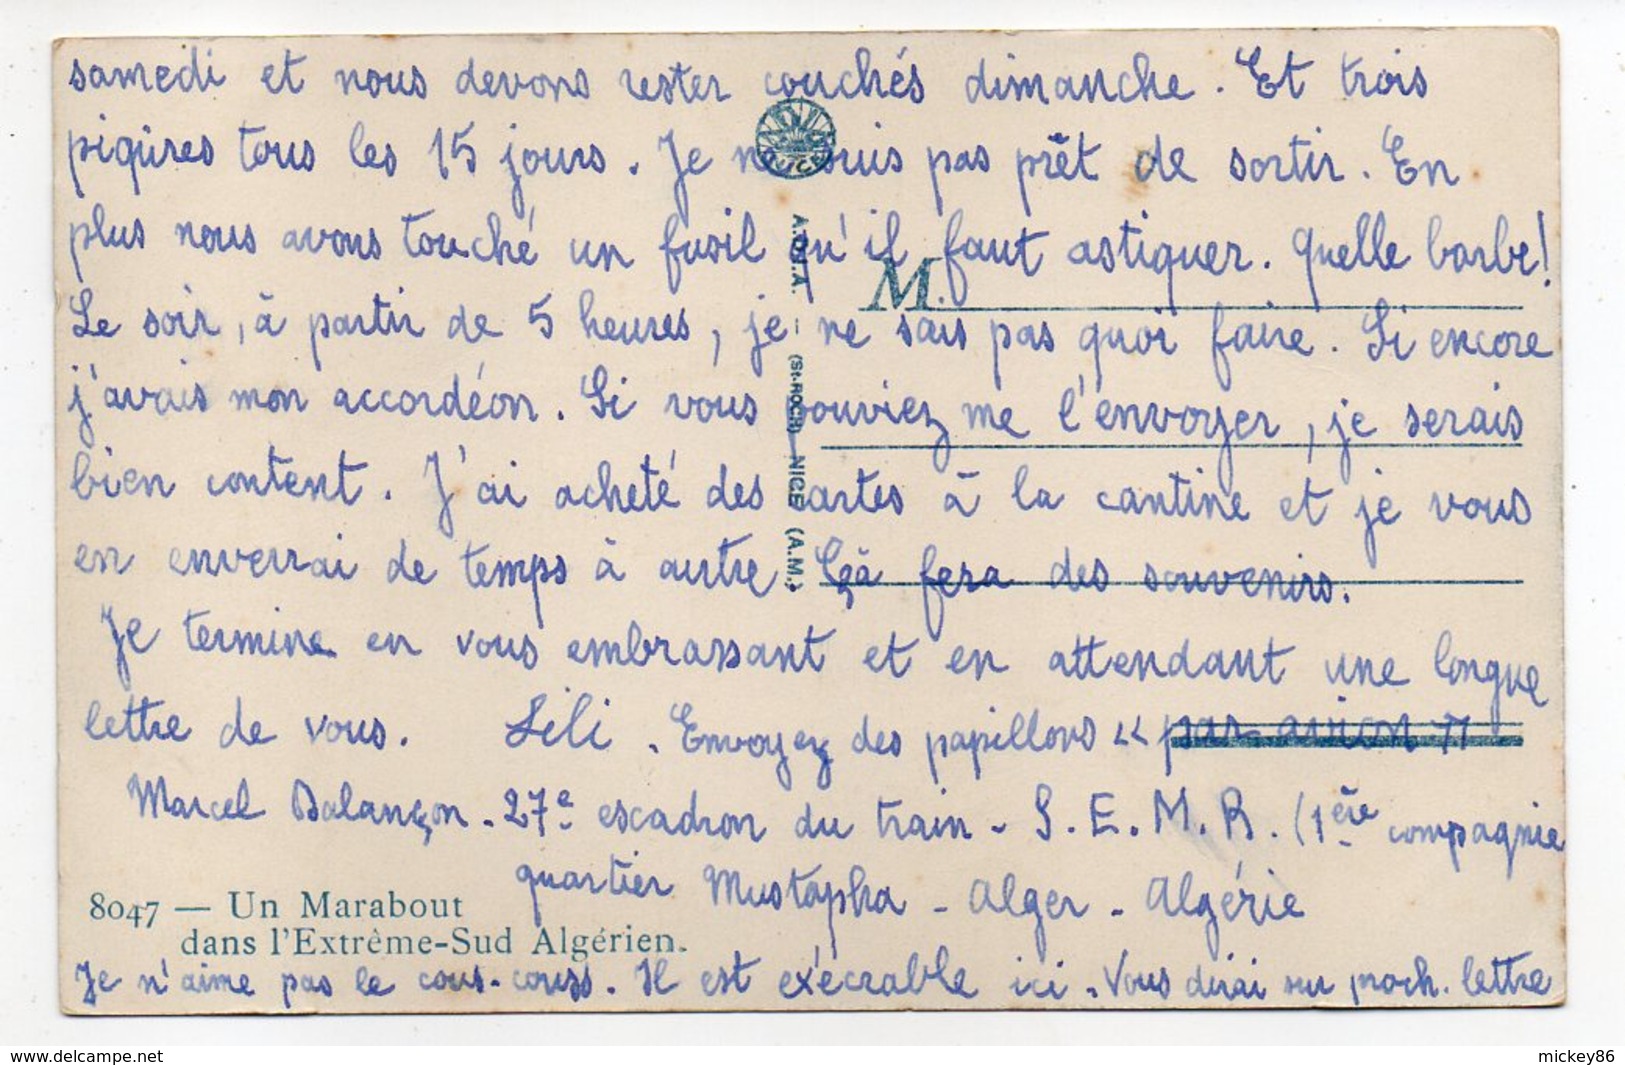 samedi et nous devons rester couchés dimanche. Et trois
piqûres tous les 15 jours. Je ne suis pas prêt de sortir. En
plus nous avons touché un fusil qu'il faut astiquer. Quelle barbe!
Le soir, à partir de 5 heures, je ne sais pas quoi faire. Si encore
j'avais mon accordéon. Si vous pouviez me l'envoyer, je serais
bien content. J'ai acheté des cartes à la cantine et je vous
en enverrai de temps à autre. Çà fera des souvenirs.
Je termine en vous embrassant et en attendant une longue
lettre de vous. Lili. Envoyez des papillons "par avion"
Marcel Balançon - 27e escadron du train - S.E.M.R. (1ère compagnie
quartier Mustapha - Alger - Algérie
8047 — Un Marabout
dans l'Extrême-Sud Algérien.
Je n'aime pas le cous-couss. Il est exécrable ici. Vous dirai sur proch. lettre
M.
(St-ROCH) — NICE (A.M.)
www.delcampe.net
mickey86